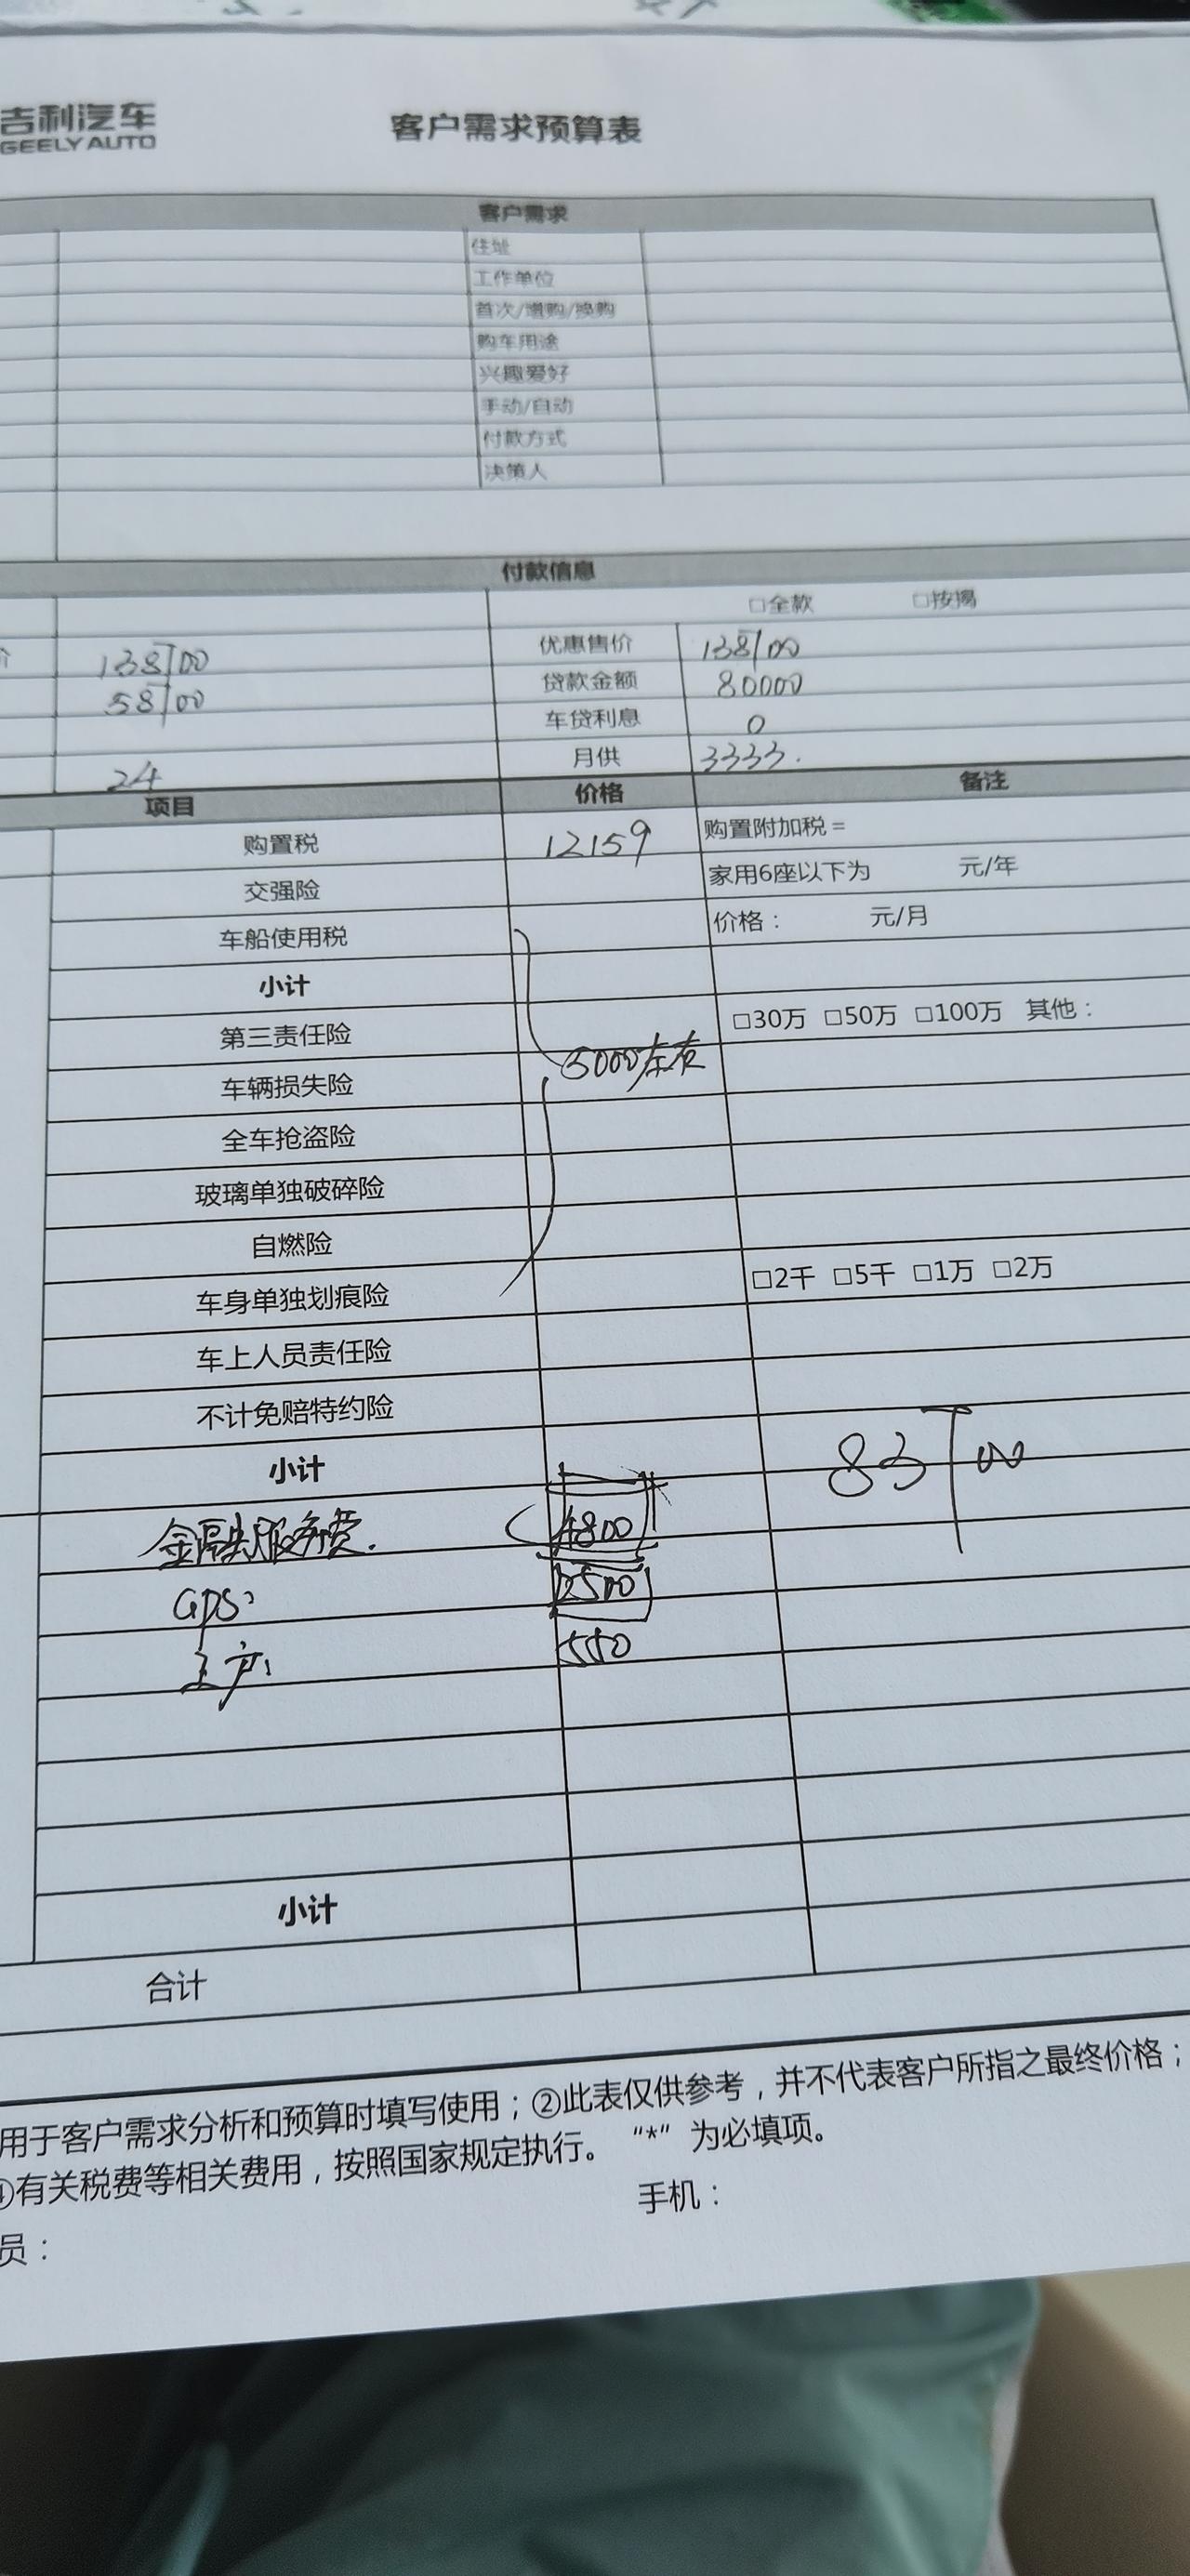 吉利汽车
GEELY AUTO
客户需求预算表
客户需求
住址
工作单位
首次/增购/换购
购车用途
兴趣爱好
手动/自动
付款方式
决策人
付款信息
□全款 □按揭
价 138700 优惠售价 138700
58700 贷款金额 80000
车贷利息 0
24 月供 3333.
项目 价格 备注
购置税 12159 购置附加税=
交强险 家用6座以下为 元/年
车船使用税 价格: 元/月
小计
第三责任险 □30万 □50万 □100万 其他:
5000左右
车辆损失险
全车抢盗险
玻璃单独破碎险
自燃险
车身单独划痕险 □2千 □5千 □1万 □2万
车上人员责任险
不计免赔特约险
小计 83700
金融服务费. 4800
GPS: 2500
上户: 550
小计
合计
用于客户需求分析和预算时填写使用;②此表仅供参考,并不代表客户所指之最终价格;
④有关税费等相关费用,按照国家规定执行。“*”为必填项。
员: 手机: